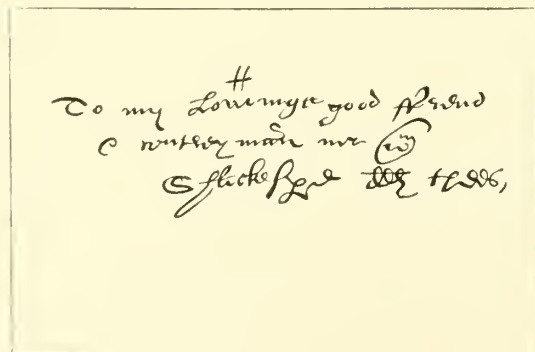 To my Loveinge good ffrend
& contreymann mr Wm
Shackespere thees